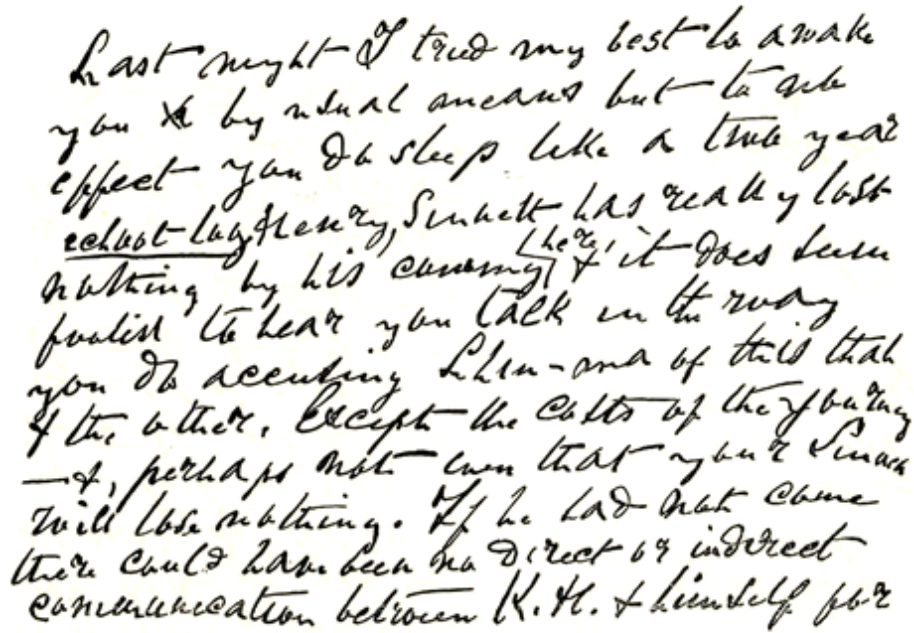 Last night I tried my best to awake
you by usual means but to no
effect you do sleep like a two year
school boy Henry, Sinnett has really lost
nothing by his coming here, & it does seem
foolish to hear you talk in the way
you do accusing of this that
& the other. Except the costs of the journey
— & perhaps not even that your Sinnett
will lose nothing. If he had not come
there could have been no direct or indirect
communication between K.H. & himself for